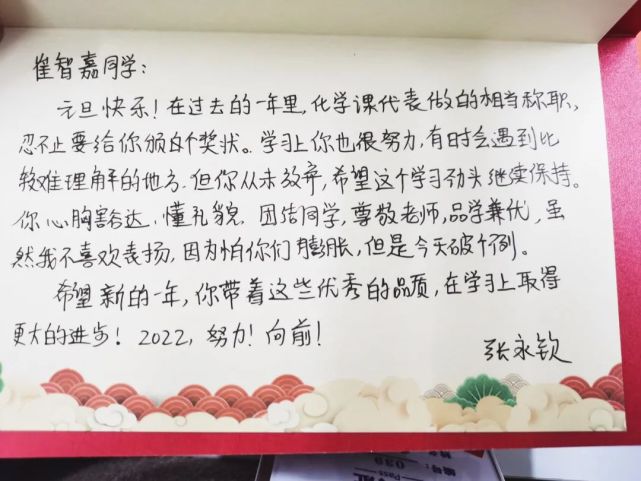 崔智嘉同学：
元旦快乐！在过去的一年里，化学课代表做的相当称职，
忍不止要给你颁个奖状。学习上你也很努力，有时会遇到比
较难理解的地方，但你从未放弃，希望这个学习劲头继续保持。
你心胸豁达，懂礼貌，团结同学，尊敬老师，品学兼优，虽
然我不喜欢表扬，因为怕你们膨胀，但是今天破个例。
希望新的一年，你带着这些优秀的品质，在学习上取得
更大的进步！2022，努力！向前！
张永钦
编号：039
Pass